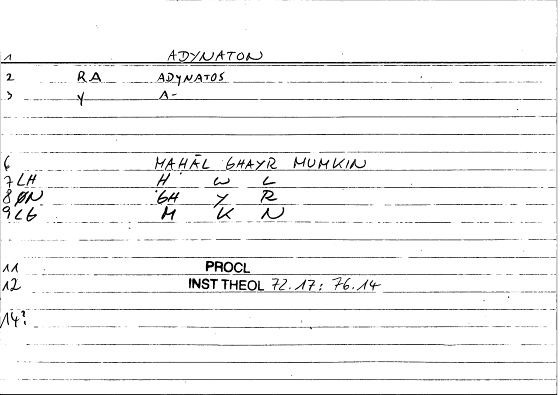 1 ADYNATON
2 RA ADYNATOS
3 Y A-
6 MAHĀL GHAYR MUMKIN
7 LH H W L
8 ØN GH Y R
9 LG M K N
11 PROCL
12 INST THEOL 72.17: 76.14
14?